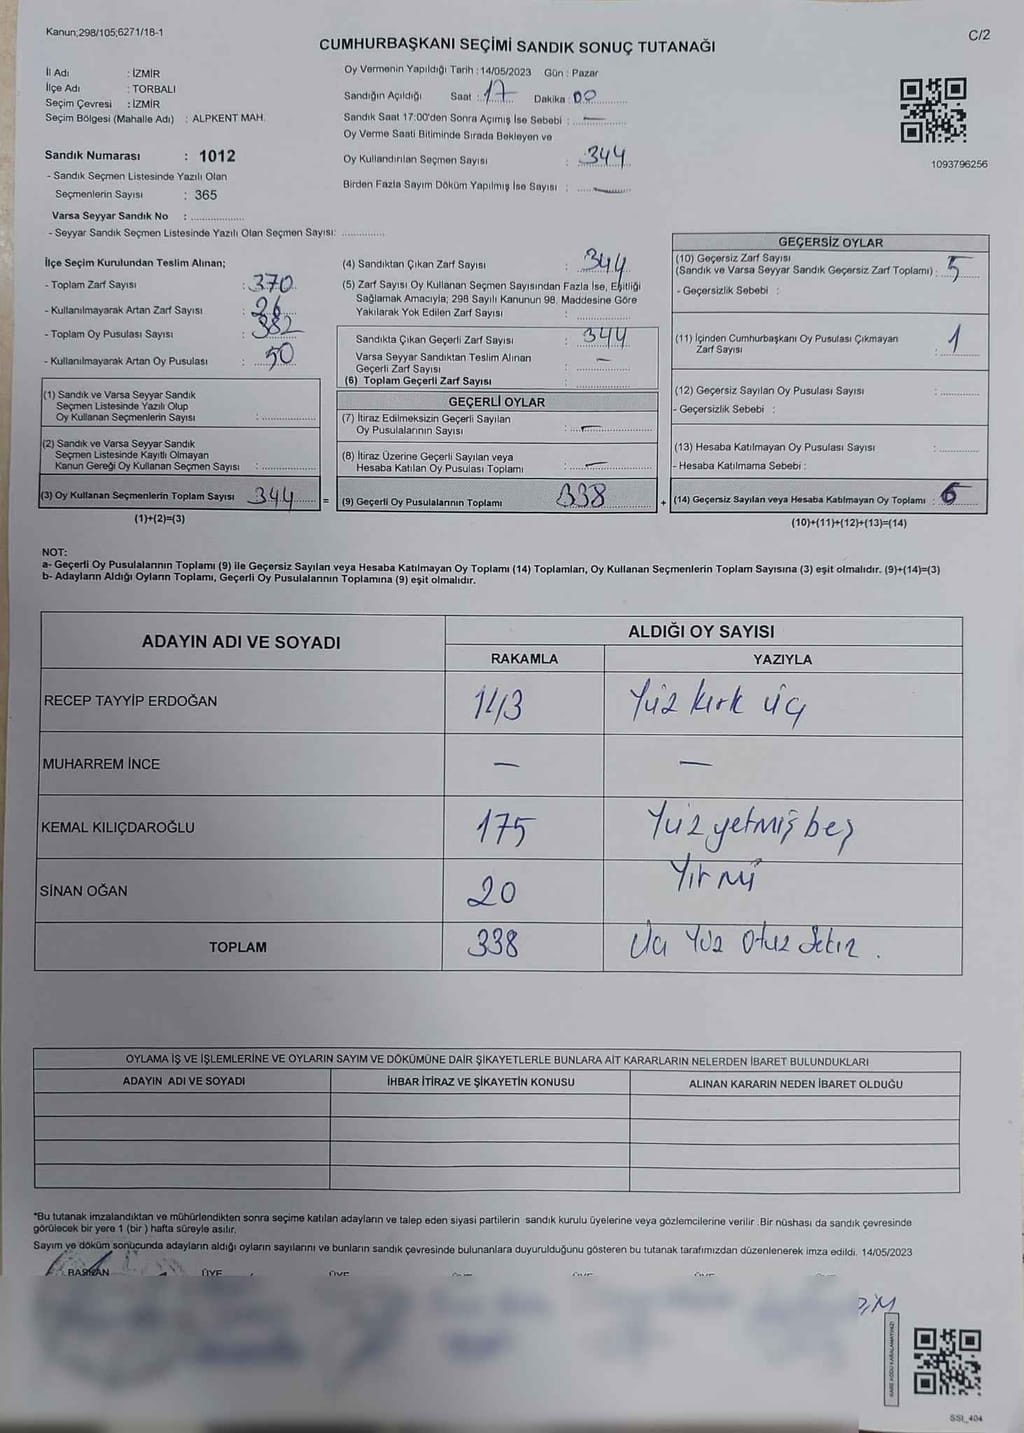 Kanun;298/105;6271/18-1
C/2
CUMHURBAŞKANI SEÇİMİ SANDIK SONUÇ TUTANAĞI
İl Adı : İZMİR
İlçe Adı : TORBALI
Seçim Çevresi : İZMİR
Seçim Bölgesi (Mahalle Adı) : ALPKENT MAH.
Sandık Numarası : 1012
- Sandık Seçmen Listesinde Yazılı Olan
Seçmenlerin Sayısı : 365
Varsa Seyyar Sandık No : ................
- Seyyar Sandık Seçmen Listesinde Yazılı Olan Seçmen Sayısı: .............
Oy Vermenin Yapıldığı Tarih : 14/05/2023 Gün : Pazar
Sandığın Açıldığı Saat : 17 Dakika : 00
Sandık Saat 17:00'den Sonra Açımış İse Sebebi : —
Oy Verme Saati Bitiminde Sırada Bekleyen ve
Oy Kullandırılan Seçmen Sayısı : 344
Birden Fazla Sayım Döküm Yapılmış İse Sayısı : —
1093796256
İlçe Seçim Kurulundan Teslim Alınan;
- Toplam Zarf Sayısı : 370
- Kullanılmayarak Artan Zarf Sayısı : 26
- Toplam Oy Pusulası Sayısı : 382
- Kullanılmayarak Artan Oy Pusulası : 50
(1) Sandık ve Varsa Seyyar Sandık
Seçmen Listesinde Yazılı Olup
Oy Kullanan Seçmenlerin Sayısı : ................
(2) Sandık ve Varsa Seyyar Sandık
Seçmen Listesinde Kayıtlı Olmayan
Kanun Gereği Oy Kullanan Seçmen Sayısı : ................
(3) Oy Kullanan Seçmenlerin Toplam Sayısı 344 =
(1)+(2)=(3)
(4) Sandıktan Çıkan Zarf Sayısı : 344
(5) Zarf Sayısı Oy Kullanan Seçmen Sayısından Fazla İse, Eşitliği
Sağlamak Amacıyla; 298 Sayılı Kanunun 98. Maddesine Göre
Yakılarak Yok Edilen Zarf Sayısı : ................
Sandıkta Çıkan Geçerli Zarf Sayısı : 344
Varsa Seyyar Sandıktan Teslim Alınan
Geçerli Zarf Sayısı : —
(6) Toplam Geçerli Zarf Sayısı : ................
GEÇERLİ OYLAR
(7) İtiraz Edilmeksizin Geçerli Sayılan
Oy Pusulalarının Sayısı : —
(8) İtiraz Üzerine Geçerli Sayılan veya
Hesaba Katılan Oy Pusulası Toplamı : —
(9) Geçerli Oy Pusulalarının Toplamı 338 +
GEÇERSİZ OYLAR
(10) Geçersiz Zarf Sayısı
(Sandık ve Varsa Seyyar Sandık Geçersiz Zarf Toplamı) : 5
- Geçersizlik Sebebi :
(11) İçinden Cumhurbaşkanı Oy Pusulası Çıkmayan
Zarf Sayısı : 1
(12) Geçersiz Sayılan Oy Pusulası Sayısı : ................
- Geçersizlik Sebebi :
(13) Hesaba Katılmayan Oy Pusulası Sayısı : ................
- Hesaba Katılmama Sebebi :
(14) Geçersiz Sayılan veya Hesaba Katılmayan Oy Toplamı : 6
(10)+(11)+(12)+(13)=(14)
NOT:
a- Geçerli Oy Pusulalarının Toplamı (9) ile Geçersiz Sayılan veya Hesaba Katılmayan Oy Toplamı (14) Toplamları, Oy Kullanan Seçmenlerin Toplam Sayısına (3) eşit olmalıdır. (9)+(14)=(3)
b- Adayların Aldığı Oyların Toplamı, Geçerli Oy Pusulalarının Toplamına (9) eşit olmalıdır.
ADAYIN ADI VE SOYADI
ALDIĞI OY SAYISI
RAKAMLA YAZIYLA
RECEP TAYYİP ERDOĞAN 143 Yüz kırk üç
MUHARREM İNCE — —
KEMAL KILIÇDAROĞLU 175 Yüz yetmiş beş
SİNAN OĞAN 20 Yirmi
TOPLAM 338 Üç Yüz Otuz Sekiz .
OYLAMA İŞ VE İŞLEMLERİNE VE OYLARIN SAYIM VE DÖKÜMÜNE DAİR ŞİKAYETLERLE BUNLARA AİT KARARLARIN NELERDEN İBARET BULUNDUKLARI
ADAYIN ADI VE SOYADI İHBAR İTİRAZ VE ŞİKAYETİN KONUSU ALINAN KARARIN NEDEN İBARET OLDUĞU
*Bu tutanak imzalandıktan ve mühürlendikten sonra seçime katılan adayların ve talep eden siyasi partilerin sandık kurulu üyelerine veya gözlemcilerine verilir .Bir nüshası da sandık çevresinde
görülecek bir yere 1 (bir ) hafta süreyle asılır.
Sayım ve döküm sonucunda adayların aldığı oyların sayılarını ve bunların sandık çevresinde bulunanlara duyurulduğunu gösteren bu tutanak tarafımızdan düzenlenerek imza edildi. 14/05/2023
BAŞKAN ÜYE ÜYE
KARE KODU KARALAMAYINIZ!
SSI_404